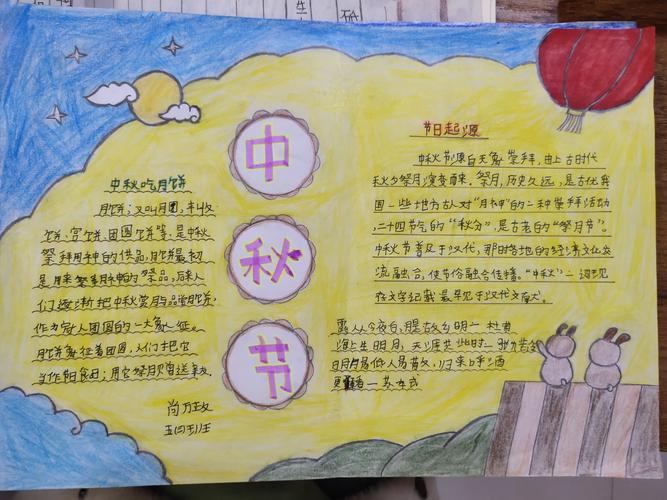 中
秋
节
中秋吃月饼
月饼,又叫月团,丰收
饼、宫饼、团圆饼等,是中秋
祭拜月神的供品,月饼最初
是用来祭奉月神的祭品,后来人
们逐渐把中秋赏月与品尝月饼,
作为家人团圆的一大象征。
月饼象征着团圆,人们把它
当作节日食品,用它祭月赠送亲友。
五四班
节日起源
中秋节源自天象崇拜,由上古时代
秋夕祭月演变而来。祭月,历史久远,是古代我
国一些地方古人对“月神”的一种崇拜活动
,二十四节气的“秋分”,是古老的“祭月节”。
中秋节普及于汉代,那时各地的经济文化交
流融合,使节俗融合传播。“中秋”一词现
存文字记载最早见于汉代文献。
露从今夜白,月是故乡明一杜甫
海上生明月,天涯共此时一张九龄
明月易低人易散,归来呼酒
更重看一苏东坡